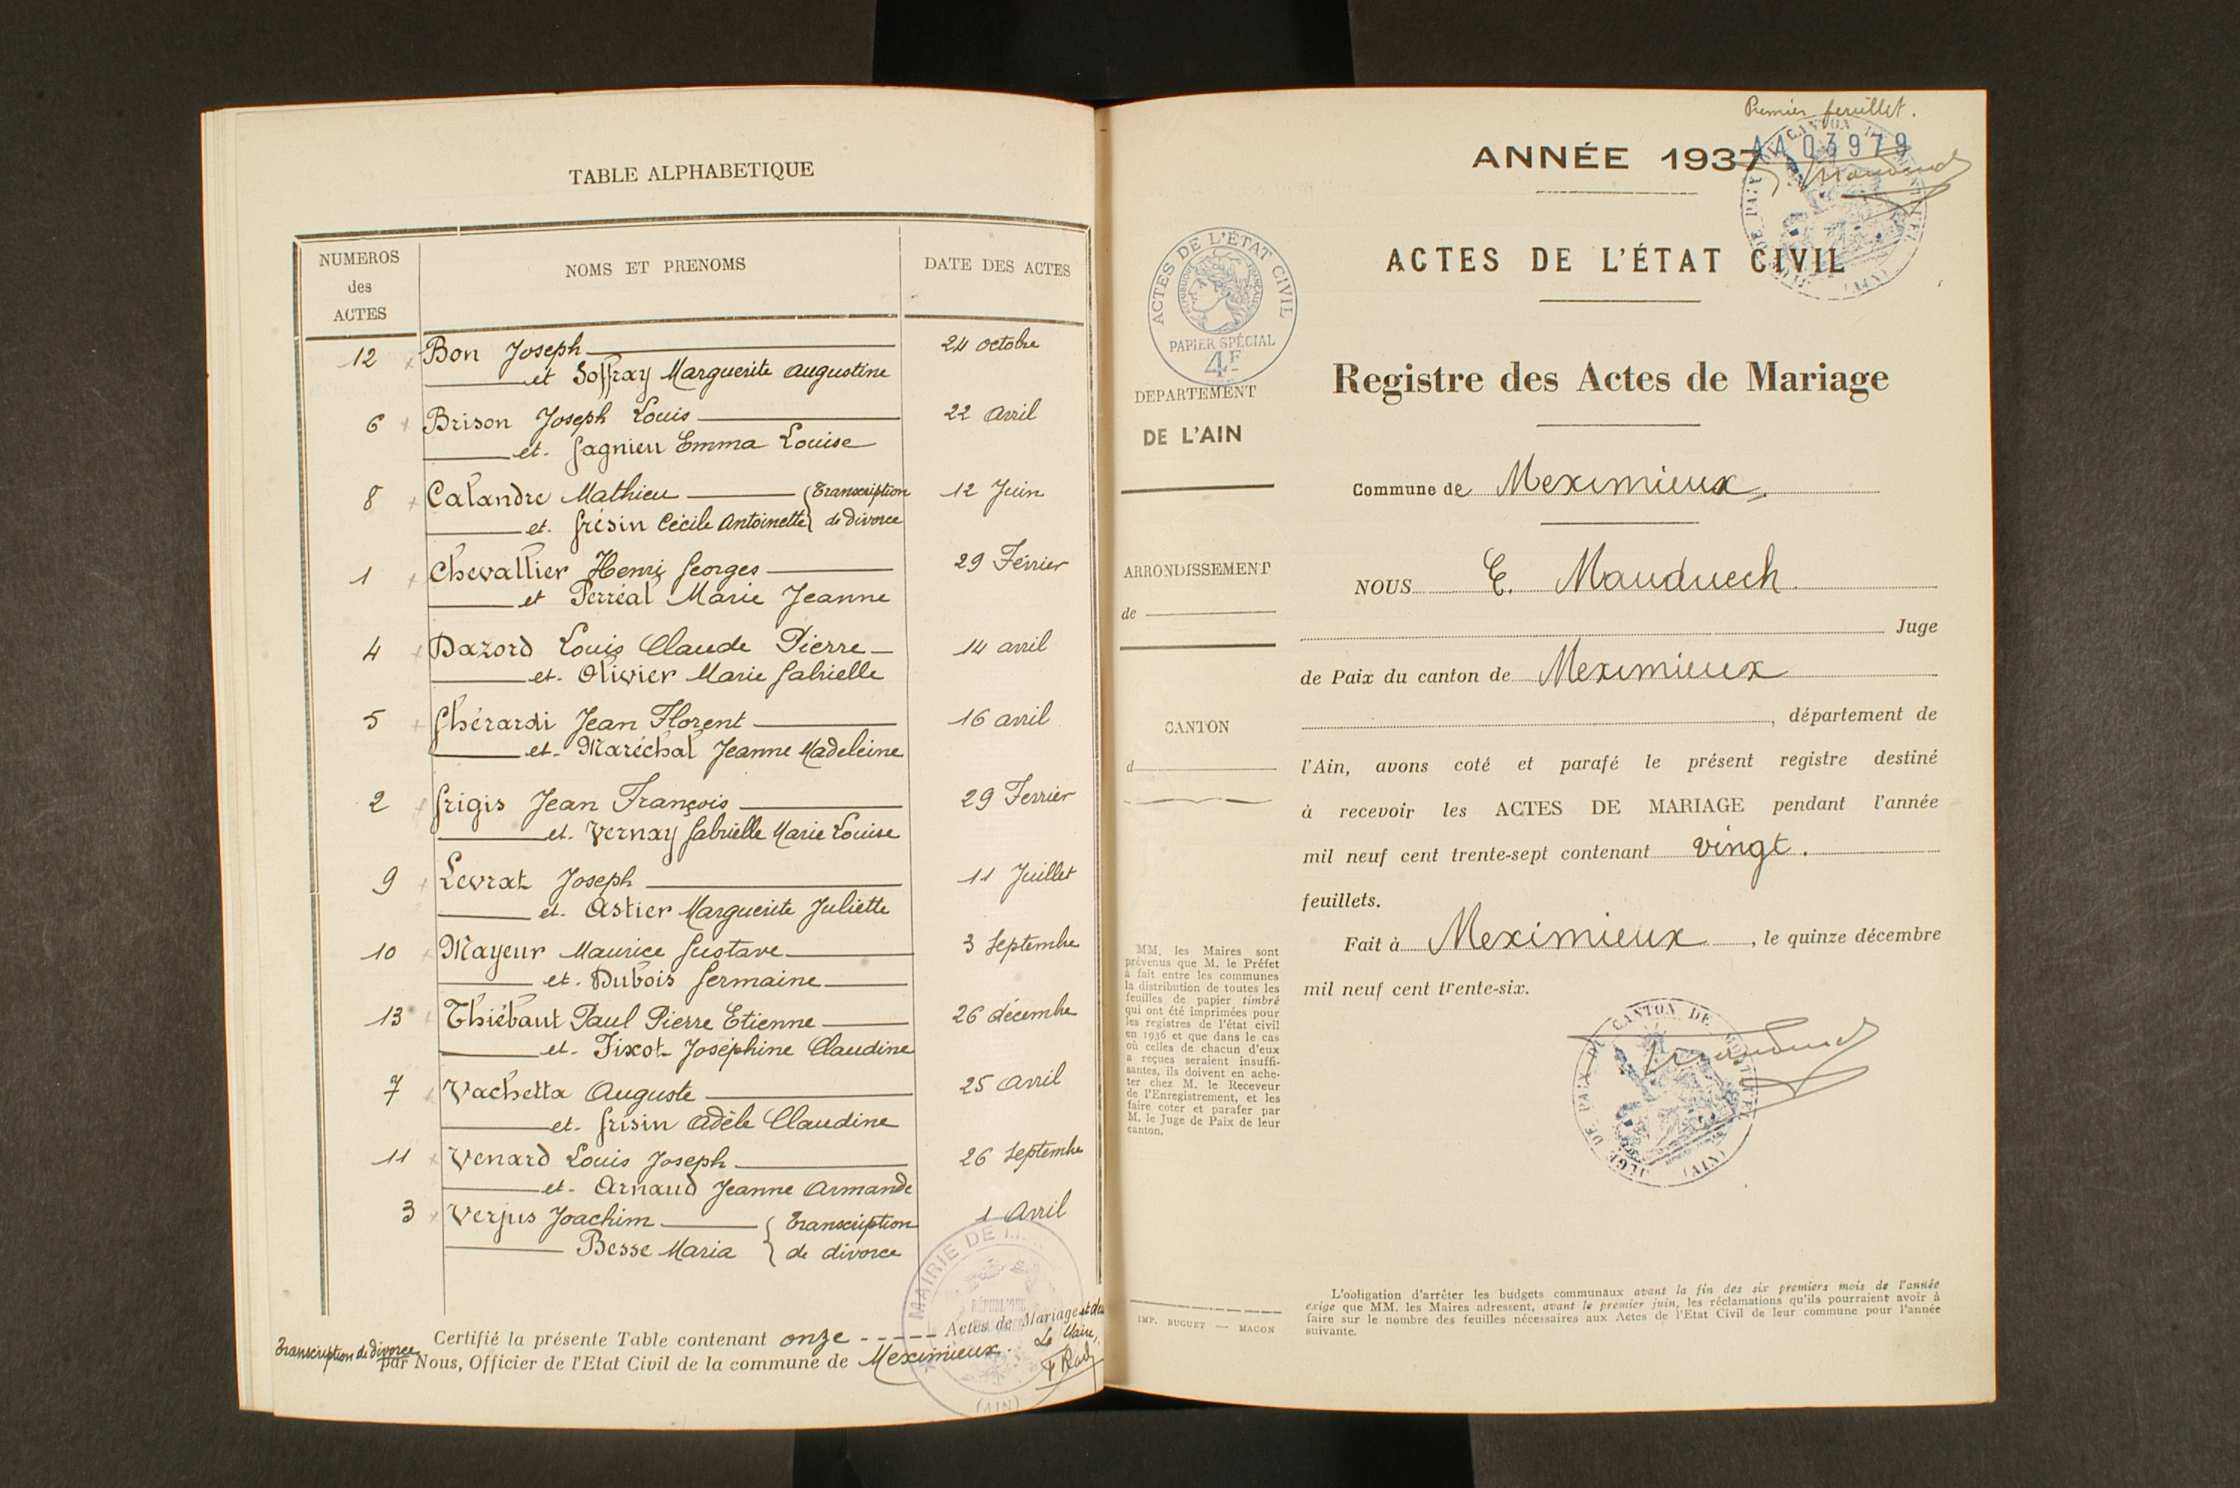 TABLE ALPHABETIQUE
NUMEROS
des
ACTES
NOMS ET PRENOMS
DATE DES ACTES
12 Bon Joseph 24 octobre
et Soffray Marguerite Augustine
6 Brison Joseph Louis 22 Avril
et. Gagnieu Emma Louise
8 Calandre Mathieu (Transcription 12 Juin
et. Grésin Cécile Antoinette) de divorce
1 Chevallier Henri Georges 29 Février
et Perréal Marie Jeanne
4 Dazord Louis Claude Pierre 14 avril
et. Olivier Marie Gabrielle
5 Ghérardi Jean Florent 16 avril
et. Maréchal Jeanne Madeleine
2 Grigis Jean François 29 Fevrier
et. Vernay Gabrielle Marie Louise
9 Levrat Joseph 11 Juillet
et. Astier Marguerite Juliette
10 Mayeur Maurice Gustave 3 Septembre
et. Dubois Germaine
13 Thiébaut Paul Pierre Etienne 26 décembre
et. Tixot Joséphine Claudine
7 Vachetta Auguste 25 Avril
et. Grisin Adèle Claudine
11 Venard Louis Joseph 26 Septembre
et. Arnaud Jeanne Armande
3 Verjus Joachim { Transcription 1 Avril
Besse Maria { de divorce
MAIRIE DE
(AIN)
Certifié la présente Table contenant onze - - - - - Actes de Mariage et deux
Transcription de divorce par Nous, Officier de l'Etat Civil de la commune de Meximieux.
Le Maire,
Premier feuillet.
AA03979
ANNÉE 1937
ACTES DE L'ÉTAT CIVIL
Registre des Actes de Mariage
ACTES DE L'ÉTAT CIVIL
RÉPUBLIQUE FRANÇAISE
PAPIER SPÉCIAL
4F
DEPARTEMENT
DE L'AIN
ARRONDISSEMENT
de
CANTON
d
MM. les Maires sont
prévenus que M. le Préfet
à fait entre les communes
la distribution de toutes les
feuilles de papier timbré
qui ont été imprimées pour
les registres de l'état civil
en 1936 et que dans le cas
où celles de chacun d'eux
a reçues seraient insuffi-
santes, ils doivent en ache-
ter chez M. le Receveur
de l'Enregistrement, et les
faire coter et parafer par
M. le Juge de Paix de leur
canton.
IMP. BUGUET — MACON
Commune de Meximieux.
NOUS E. Mauduech
Juge
de Paix du canton de Meximieux
, département de
l'Ain, avons coté et parafé le présent registre destiné
à recevoir les ACTES DE MARIAGE pendant l'année
mil neuf cent trente-sept contenant vingt.
feuillets.
Fait à Meximieux, le quinze décembre
mil neuf cent trente-six.
CANTON DE
JUGE DE PAIX DU
(AIN)
L'obligation d'arrêter les budgets communaux avant la fin des six premiers mois de l'année
exige que MM. les Maires adressent, avant le premier juin, les réclamations qu'ils pourraient avoir à
faire sur le nombre des feuilles nécessaires aux Actes de l'Etat Civil de leur commune pour l'année
suivante.